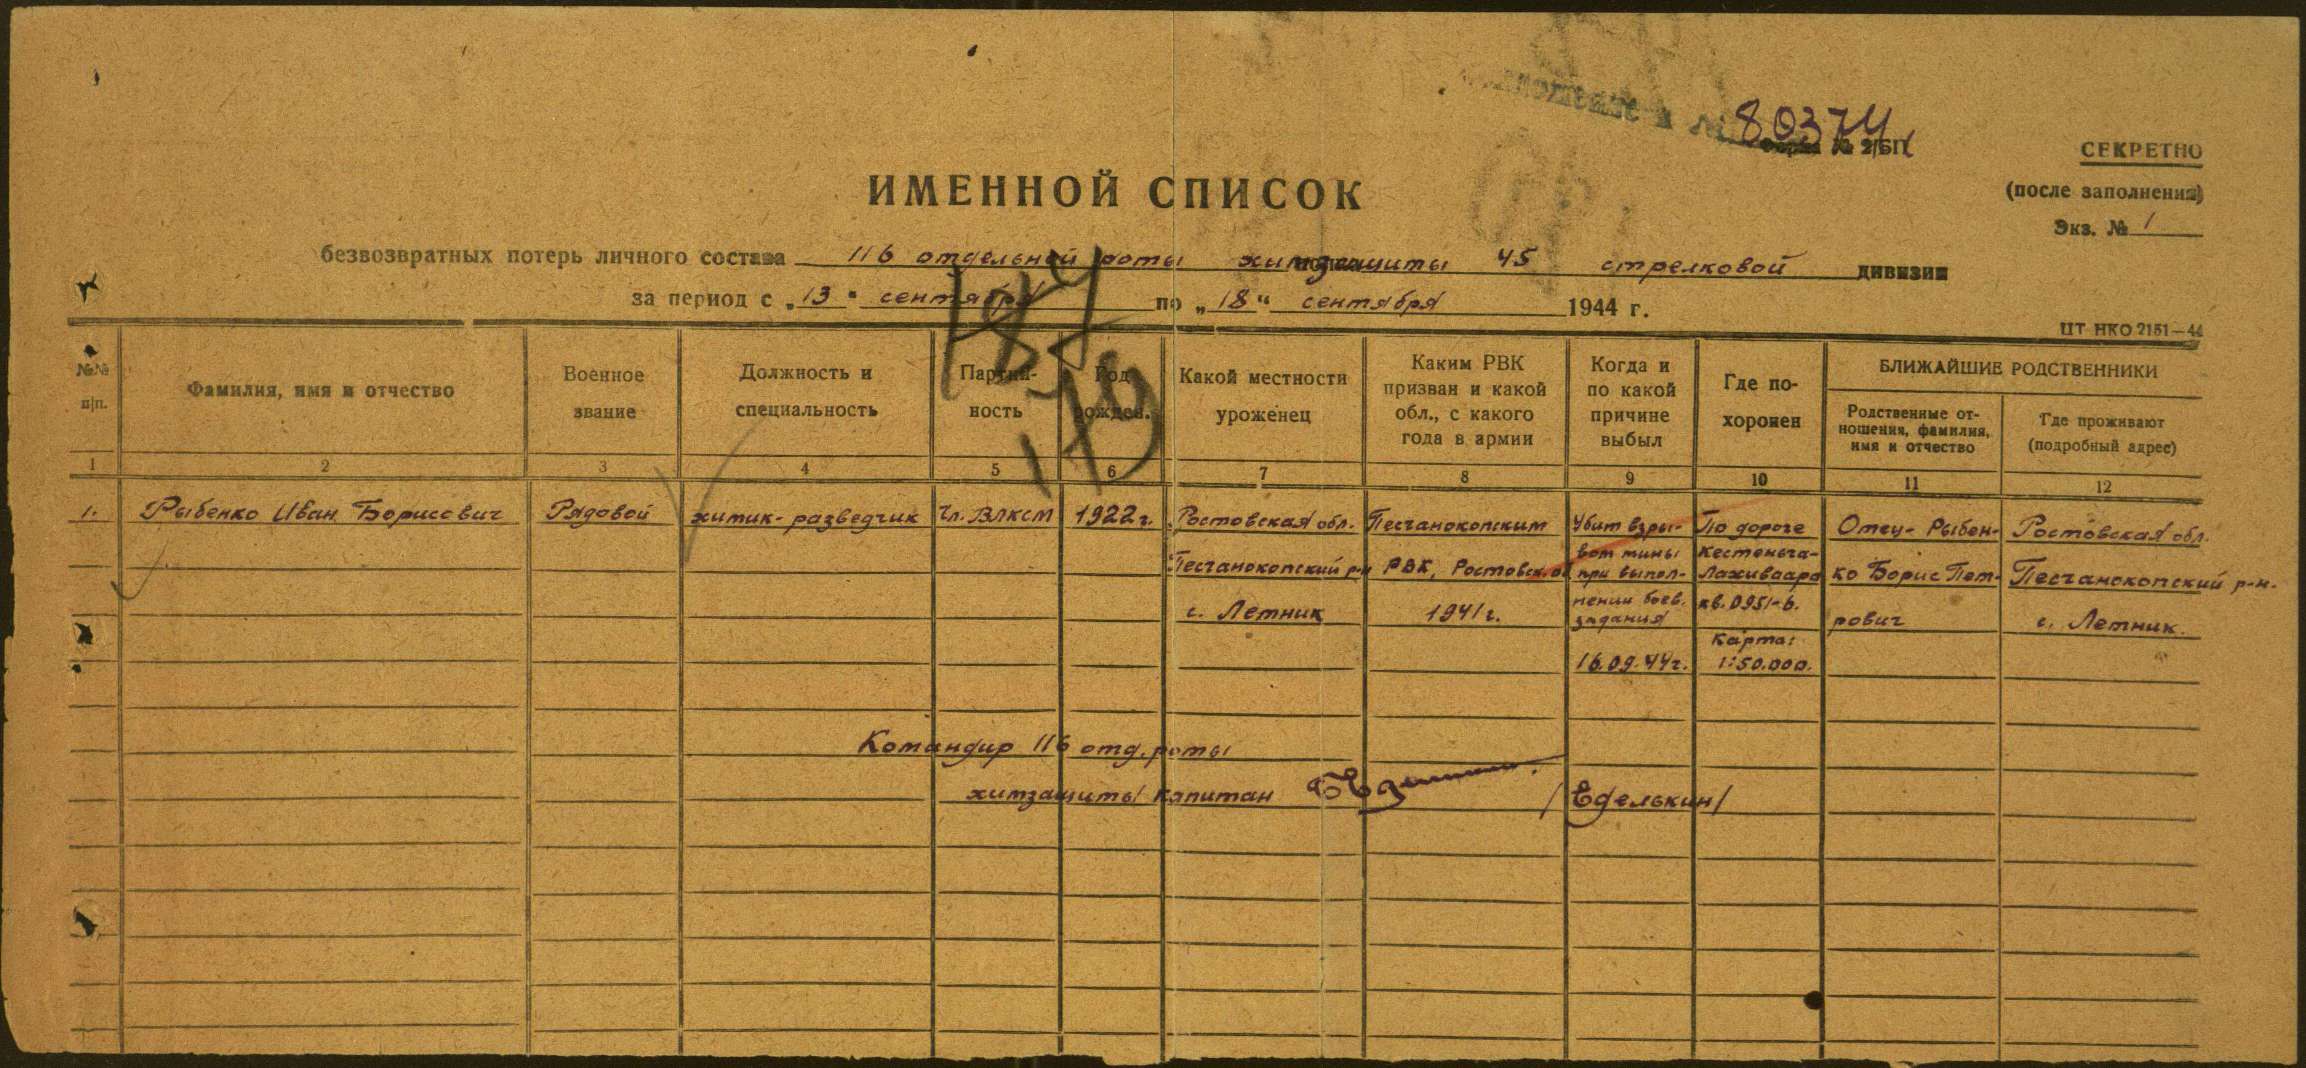 80374
Форма № 2/БП
СЕКРЕТНО
(после заполнения)
Экз. № 1
ИМЕННОЙ СПИСОК
безвозвратных потерь личного состава 116 отдельной роты химзащиты 45 стрелковой дивизии
за период с „13“ сентября по „18“ сентября 1944 г.
ЦТ НКО 2151—44
№№ п|п.
Фамилия, имя и отчество
Военное звание
Должность и специальность
Партий-
ность
Год рожден.
Какой местности уроженец
Каким РВК
призван и какой
обл., с какого
года в армии
Когда и
по какой
причине
выбыл
Где по-
хоронен
БЛИЖАЙШИЕ РОДСТВЕННИКИ
Родственные от-
ношения, фамилия,
имя и отчество
Где проживают
(подробный адрес)
1 2 3 4 5 6 7 8 9 10 11 12
1.
Рыбенко Иван Борисович
Рядовой
химик-разведчик
Чл. ВЛКСМ
1922 г.
Ростовская обл.
Песчанокопский р-н
с. Летник
Песчанокопским
РВК, Ростовск. об
1941 г.
Убит взры-
вом мины
при выпол-
нении боев.
задания
16.09.44 г.
По дороге
Кестеньга-
Лохиваара
кв. 0951-б.
Карта:
1:50.000.
Отец- Рыбен-
ко Борис Пет-
рович
Ростовская обл.
Песчанокопский р-н.
с. Летник.
Командир 116 отд. роты
химзащиты капитан /Еделькин/